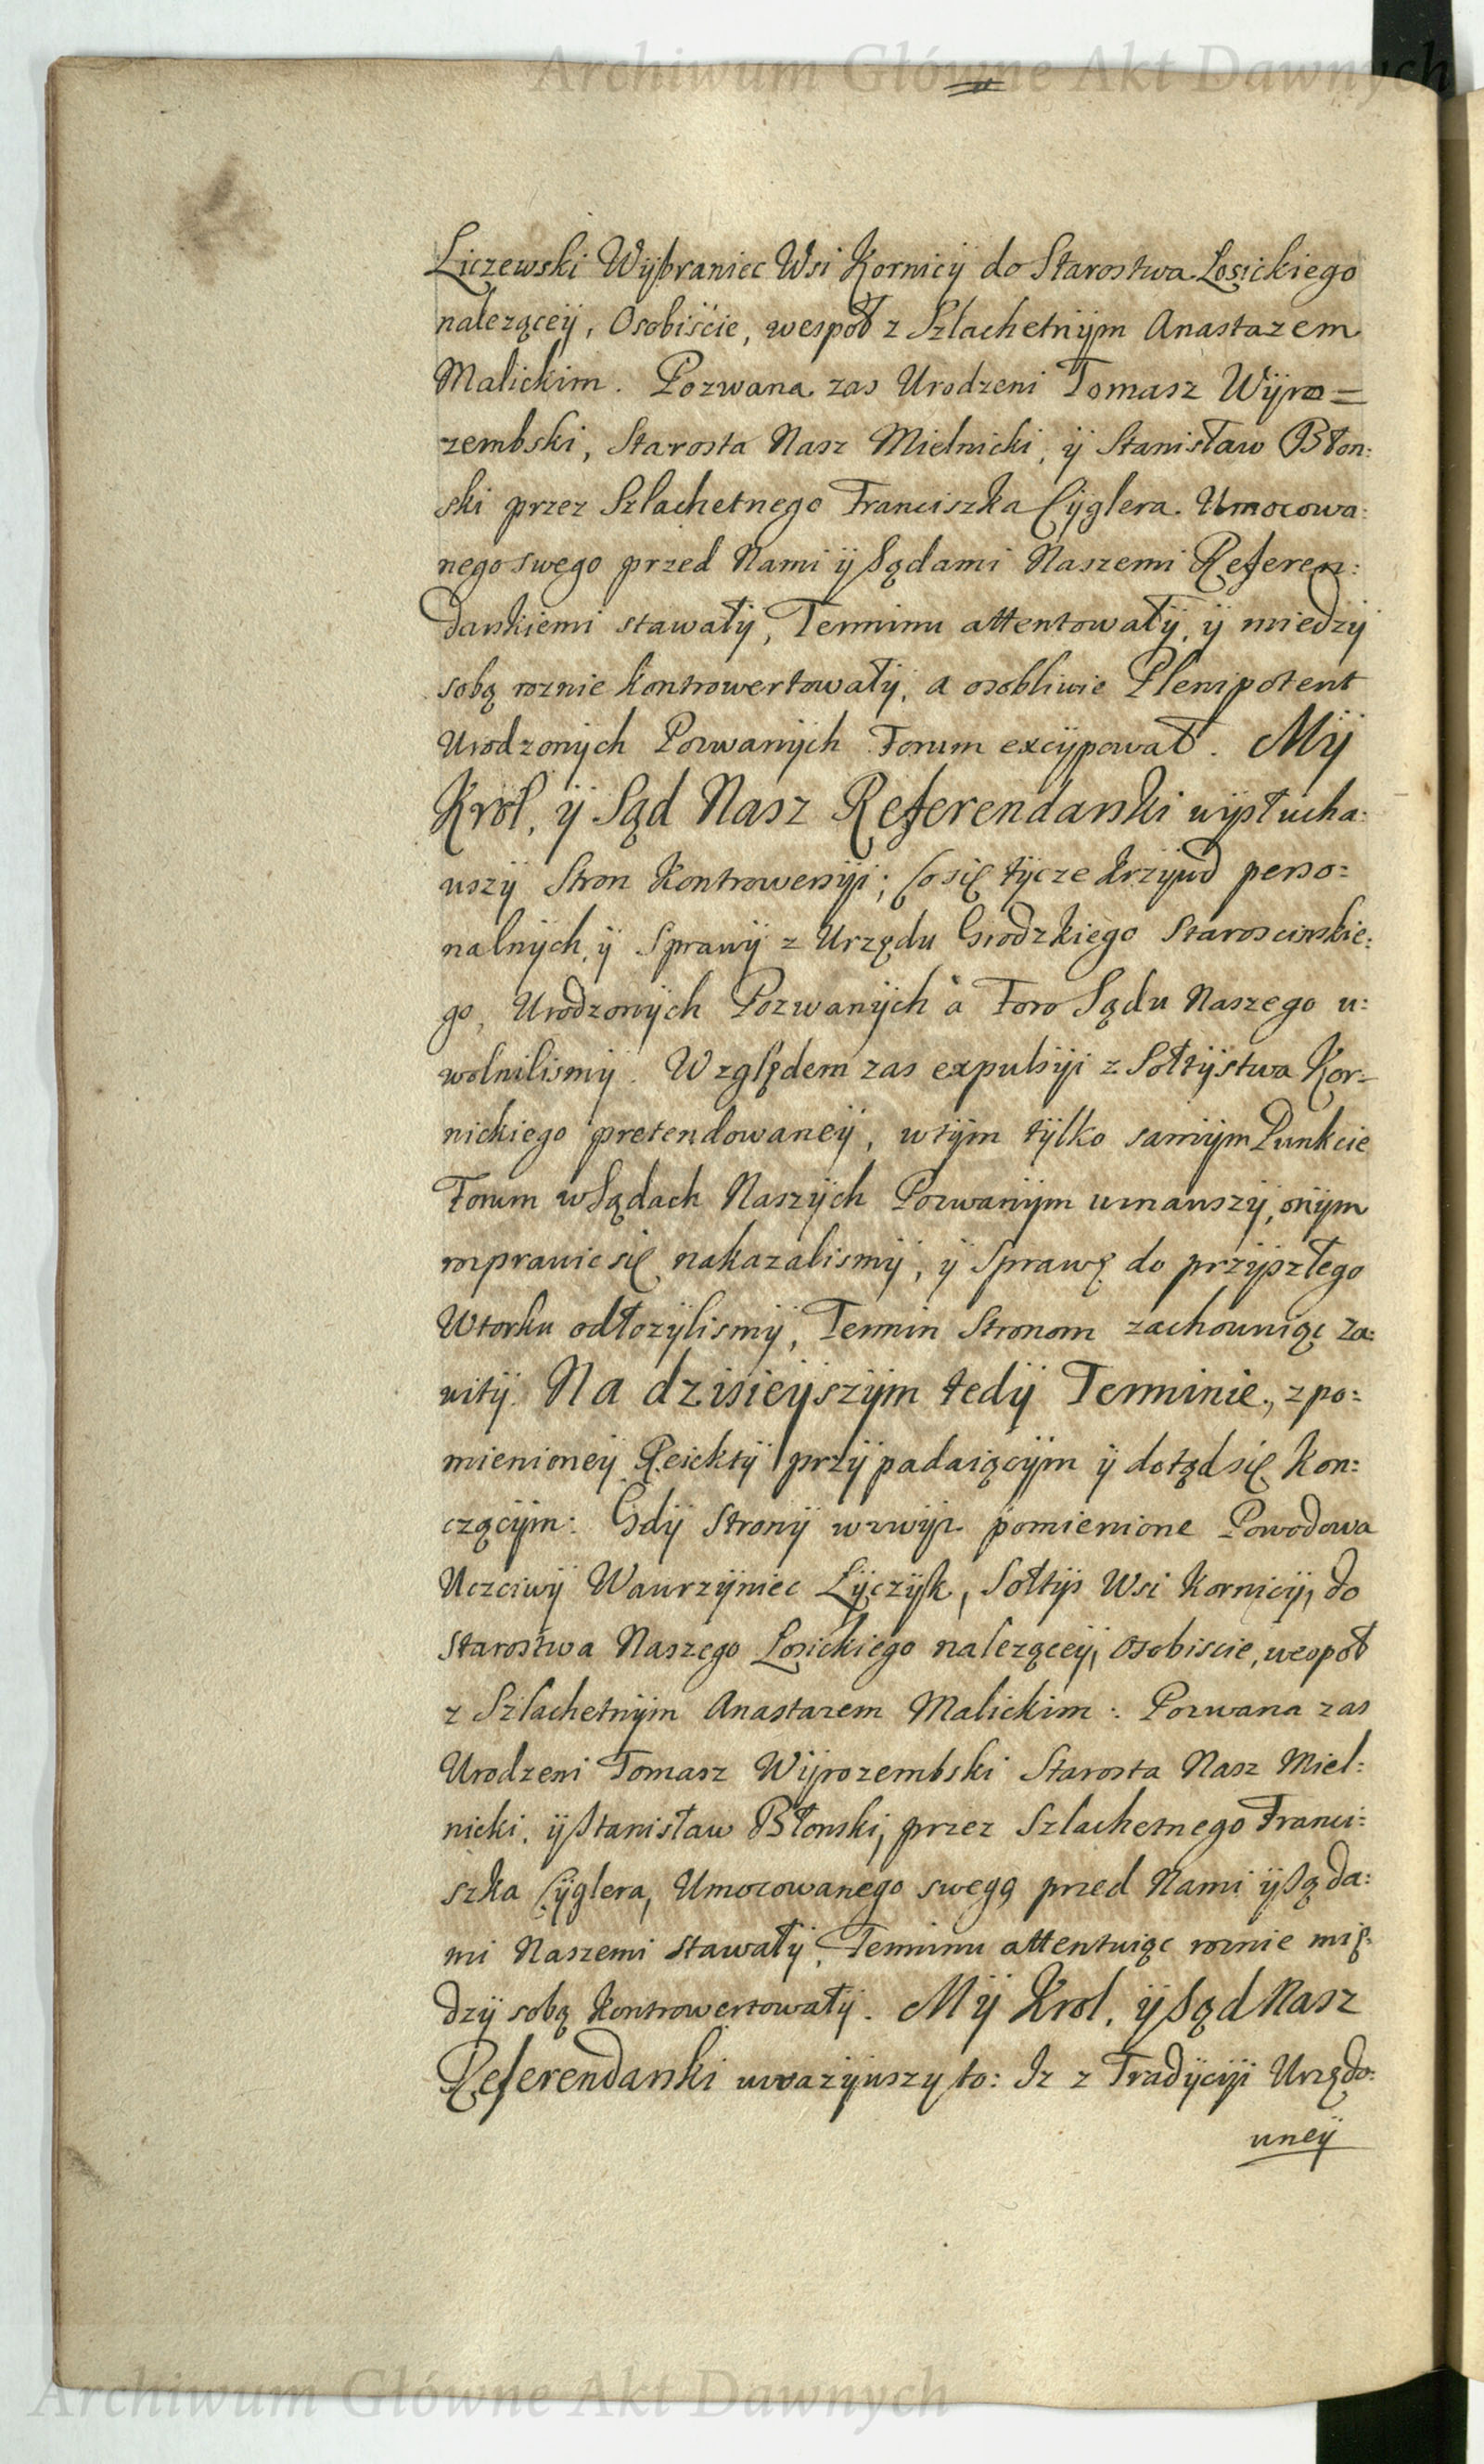 Archiwum Główne Akt Dawnych
Liczewski Wÿbraniec Wsi Kornicÿ do Starostwa Łosickiego
naleząceÿ, Osobiscie, wespoł z Szlachetnÿm Anastazem
Malickim. Pozwana zas Urodzeni Tomasz Wÿro=
zembski, Starosta Nasz Mielnicki, ÿ Stanisław Błon:
ski przez Szlachetnego Franciszka Cÿglera Umocowa:
nego swego przed Nami ÿ Sądami Naszemi Referen:
darskiemi stawałÿ, Terminu attentowałÿ, ÿ miedzÿ
sobą roznie kontrowertowałÿ, a osobliwie Plenipotent
Urodzonÿch Pozwanÿch Forum excÿpował. Mÿ
Krol, ÿ Sąd Nasz Referendarski wÿsłucha:
wszÿ Stron Kontrowersÿi; Co się tÿcze krzÿwd perso=
nalnÿch, ÿ Sprawÿ z Urzędu Grodzkiego Staroscinskie:
go, Urodzonÿch Pozwanÿch à Foro Sądu Naszego u:
wolnilismÿ. Względem zas expulsÿi z Sołtÿstwa Kor=
nickiego pretendowaneÿ, w tÿm tÿlko samÿm Punkcie
Forum w Sądach Naszÿch Pozwanÿm uznawszÿ, onÿm
rozprawic się nakazalismÿ, ÿ Sprawę do przÿszłego
Wtorku odłozÿlismÿ, Termin Stronom zachowuiąc za:
witÿ. Na dzisieÿszÿm tedÿ Terminie, z po:
mienioneÿ Reiektÿ przÿpadaiącÿm ÿ dotąd się kon:
czącÿm: Gdÿ Stronÿ wzwÿż pomienione Powodowa
Uczciwÿ Wawrzÿniec Łÿczÿk, Sołtÿs Wsi Kornicÿ, do
Starostwa Naszego Łosickiego naleząceÿ, Osobiscie, wespoł
z Szlachetnÿm Anastazem Malickim: Pozwana zas
Urodzeni Tomasz Wÿrozembski Starosta Nasz Miel:
nicki, ÿ Stanisław Błonski, przez Szlachetnego Franci:
szka Cÿglera, Umocowanego swego przed Nami ÿ Sąda:
mi Naszemi stawałÿ, Terminu attentuiąc roznie mię:
dzÿ sobą kontrowertowałÿ. Mÿ Krol, ÿ Sąd Nasz
Referendarski uwazÿwszy to: Iz z Tradÿcÿi Urzędo:
wneÿ
Archiwum Główne Akt Dawnych